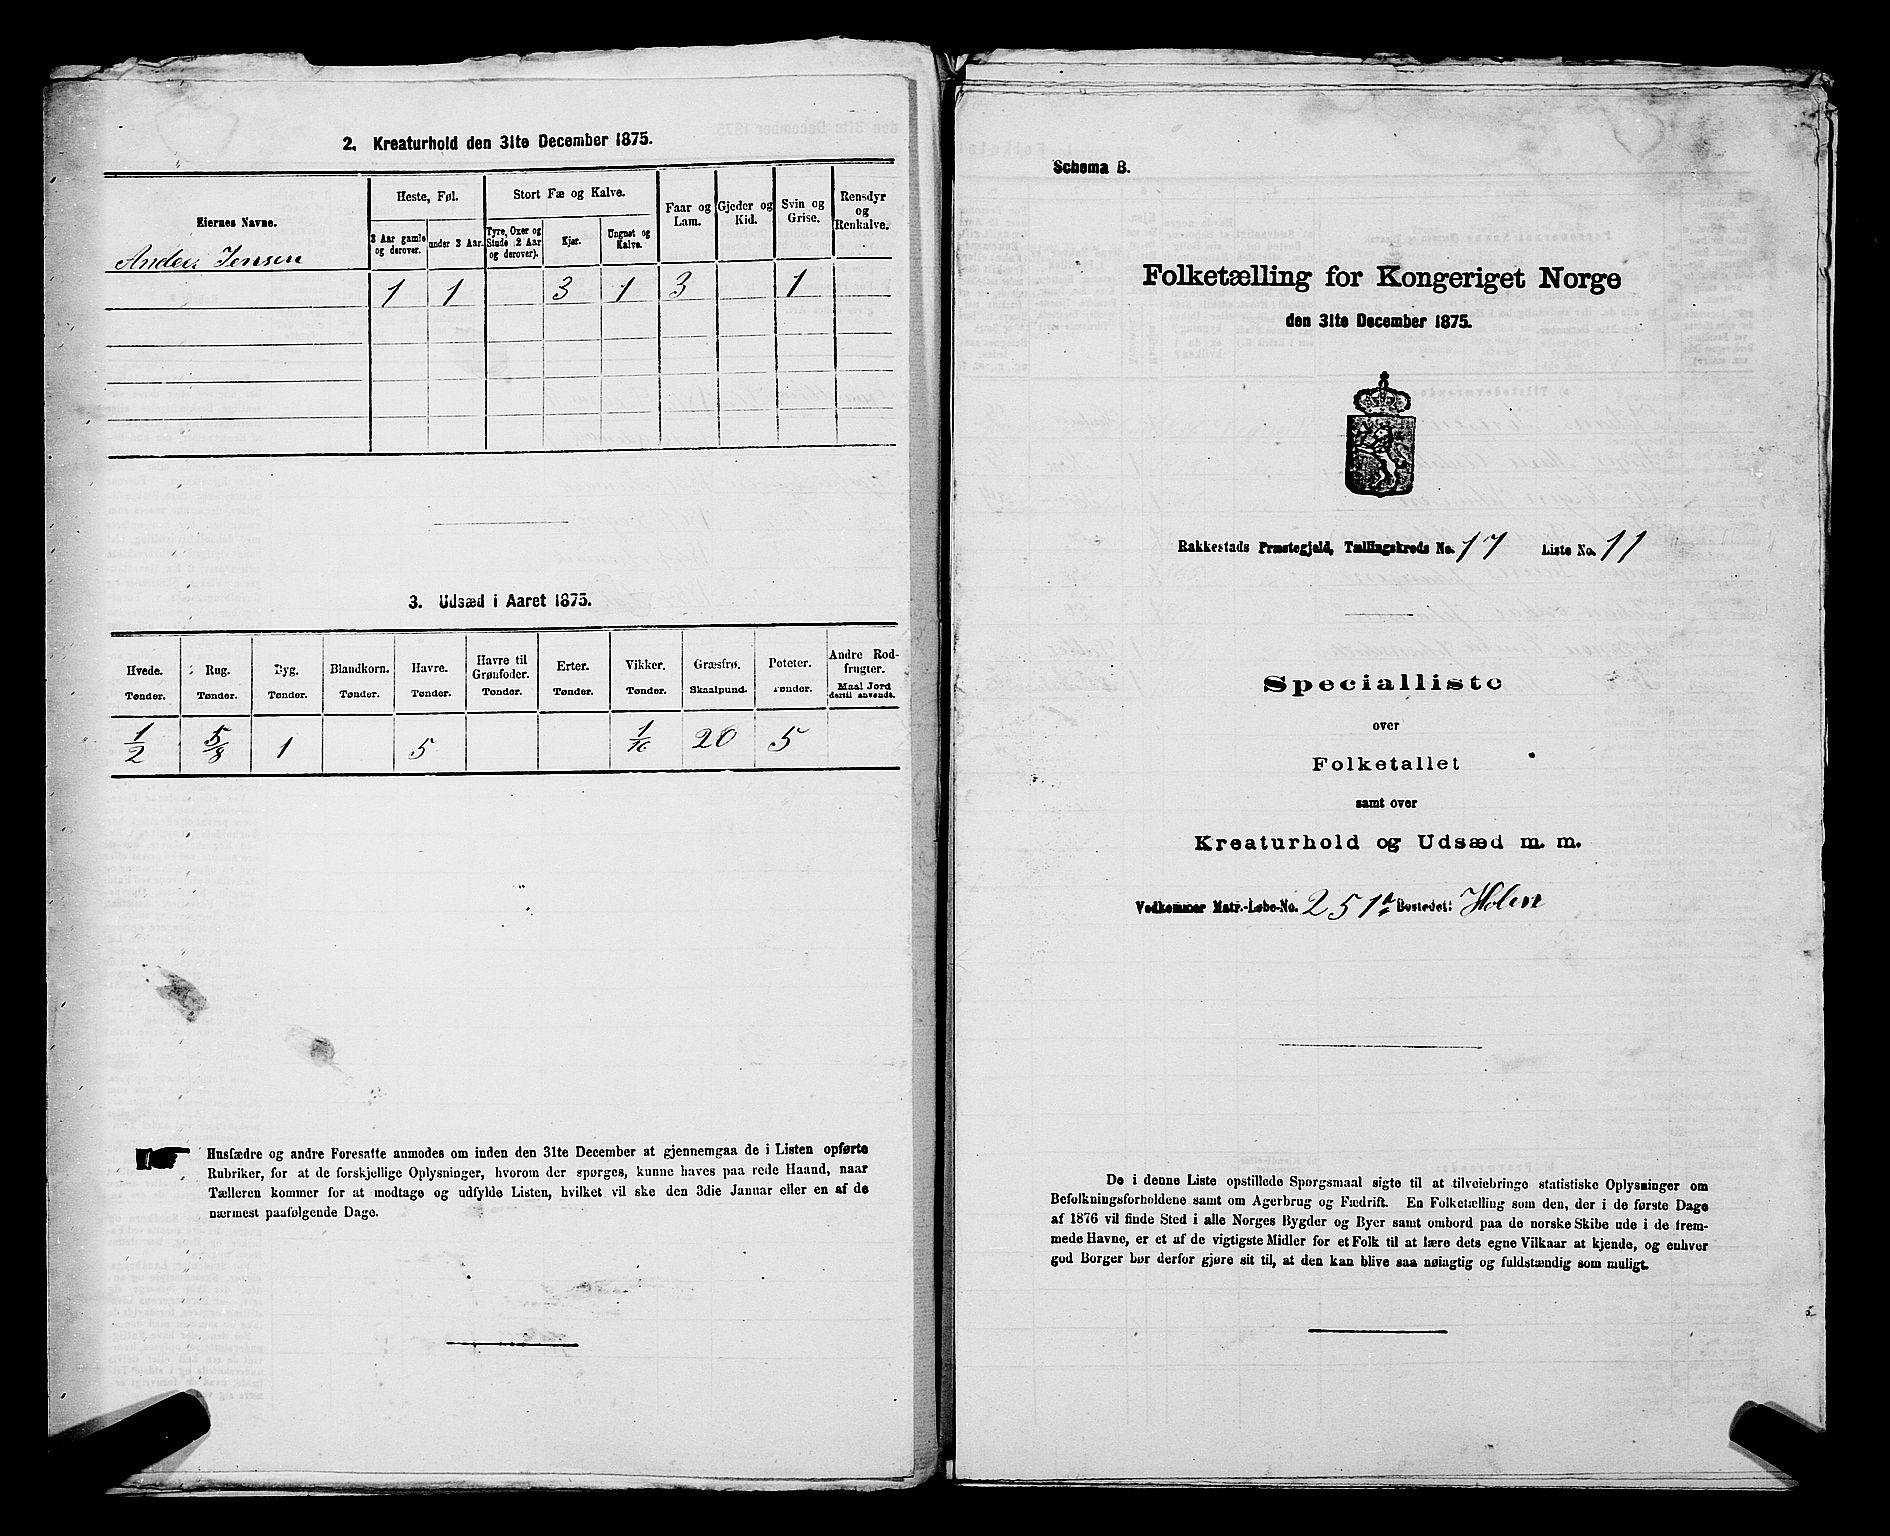 2. Kreaturhold den 31te December 1875.
Eiernes Navne.
Heste, Føl.
3 Aar gamle og derover.
under 3 Aar.
Stort Fæ og Kalve.
Tyre, Oxer og Stude (2 Aar og derover).
Kjør.
Ungnøt og Kalve.
Faar og Lam.
Gjeder og Kid.
Svin og Grise.
Rensdyr og Renkalve.
Anders Jensen
1 1 3 1 3 1
3. Udsæd i Aaret 1875.
Hvede. Rug. Byg. Blandkorn. Havre. Havre til Grønfoder. Erter. Vikker. Græsfrø. Poteter. Andre Rodfrugter.
Tønder. Tønder. Tønder. Tønder. Tønder. Tønder. Tønder. Tønder. Skaalpund. Tønder. Maal Jord dertil anvendt.
1/2 5/8 1 5 1/16 20 5
Husfædre og andre Foresatte anmodes om inden den 31te December at gjennemgaa de i Listen opførte
Rubriker, for at de forskjellige Oplysninger, hvorom der spørges, kunne haves paa rede Haand, naar
Tælleren kommer for at modtage og udfylde Listen, hvilket vil ske den 3die Januar eller en af de
nærmest paafølgende Dage.
Schema B.
Folketælling for Kongeriget Norge
den 31te December 1875.
Rakkestads Præstegjeld, Tællingskreds No. 17 Liste No. 11
Specialliste
over
Folketallet
samt over
Kreaturhold og Udsæd m. m.
Vedkommer Matr.-Løbe-No. 251a Bostedet: Holen
De i denne Liste opstillede Spørgsmaal sigte til at tilveiebringe statistiske Oplysninger om
Befolkningsforholdene samt om Agerbrug og Fædrift. En Folketælling som den, der i de første Dage
af 1876 vil finde Sted i alle Norges Bygder og Byer samt ombord paa de norske Skibe ude i de frem-
mede Havne, er et af de vigtigste Midler for et Folk til at lære dets egne Vilkaar at kjende, og enhver
god Borger bør derfor gjøre sit til, at den kan blive saa nøiagtig og fuldstændig som muligt.